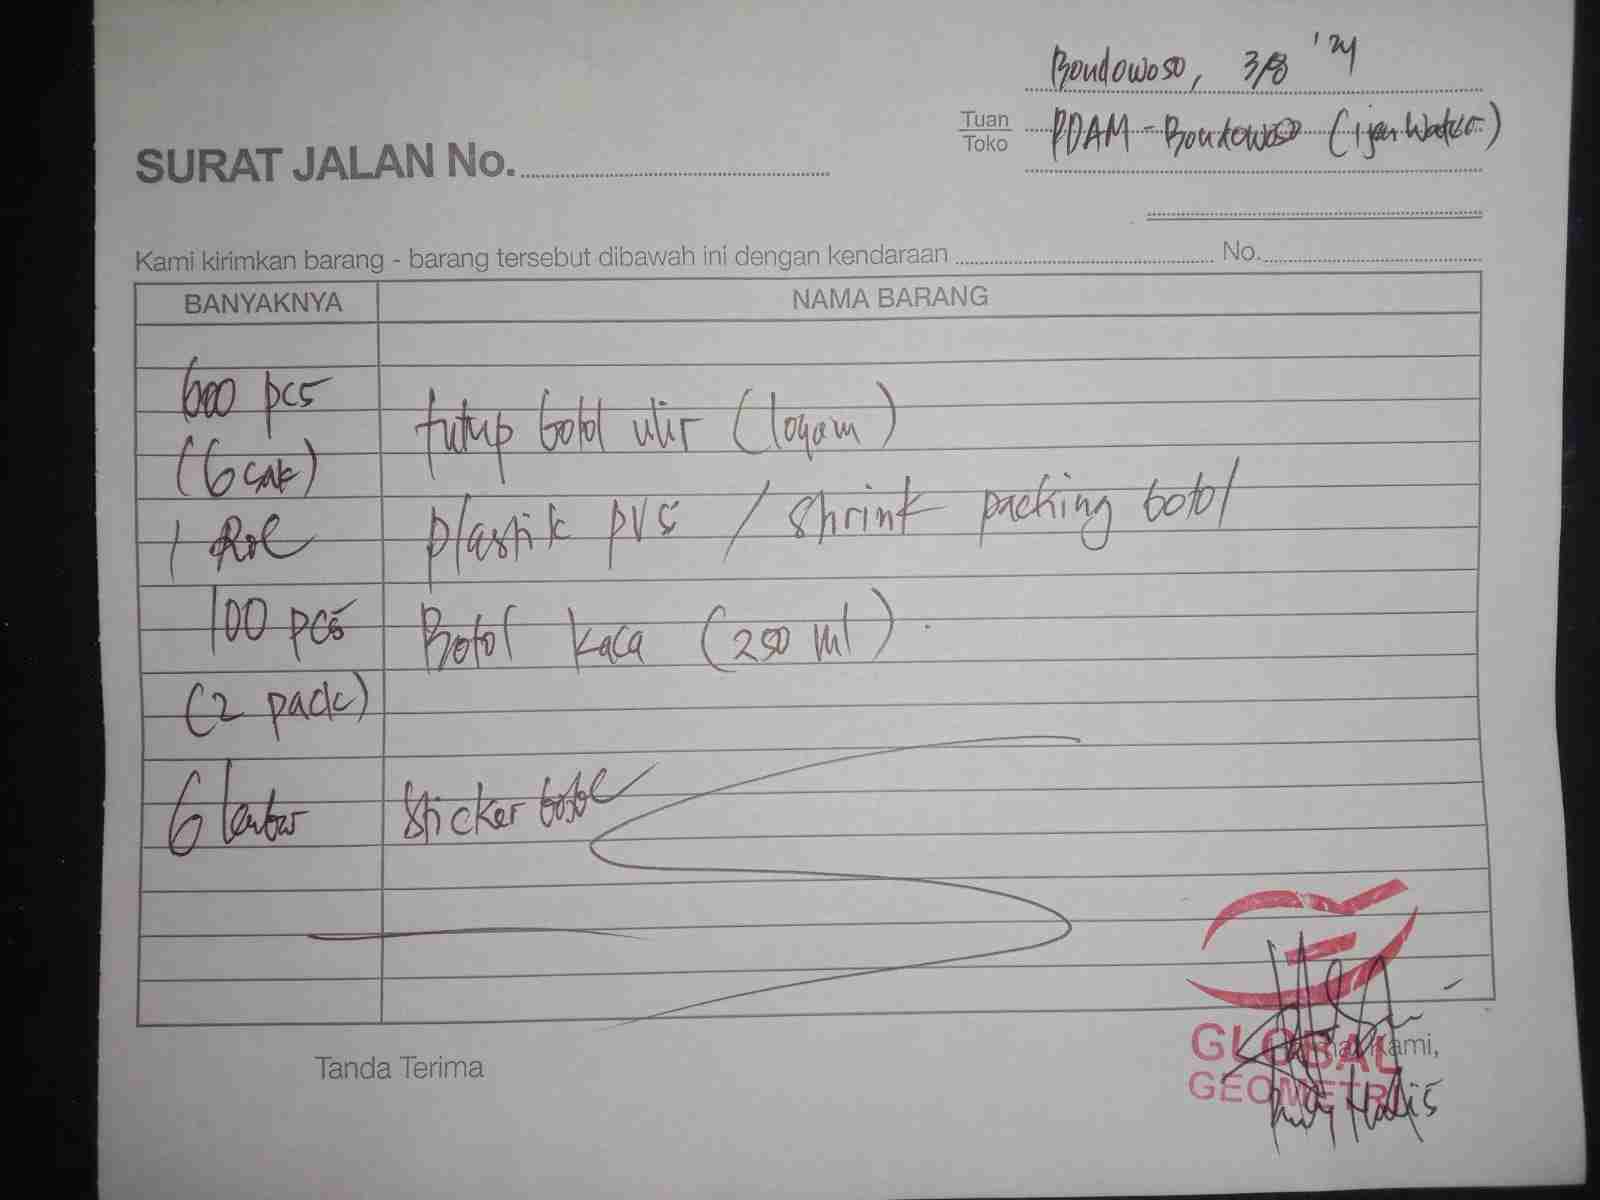 Bondowoso, 3/8 '24
Tuan
Toko
PDAM - Bondowoso (Ijen Water)
SURAT JALAN No.
Kami kirimkan barang - barang tersebut dibawah ini dengan kendaraan No.
BANYAKNYA NAMA BARANG
600 pcs tutup botol ulir (logam)
(6 sak)
1 Rol plastik pvs / shrink packing botol
100 pcs Botol kaca (250 ml).
(2 pack)
6 lembar Sticker botol
Tanda Terima
Kami,
GLOBAL
GEOMETRI